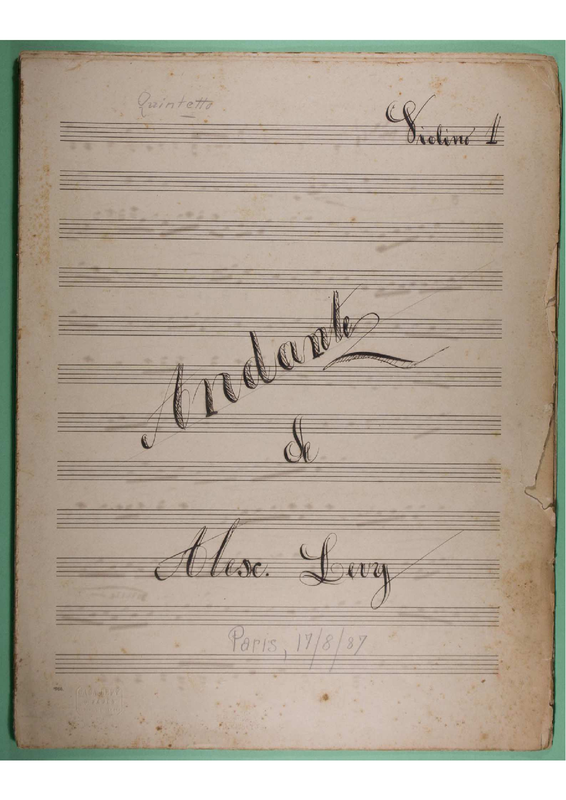 Quintetto
Violino 1
Andante
de
Alex. Levy
Paris, 17/8/87